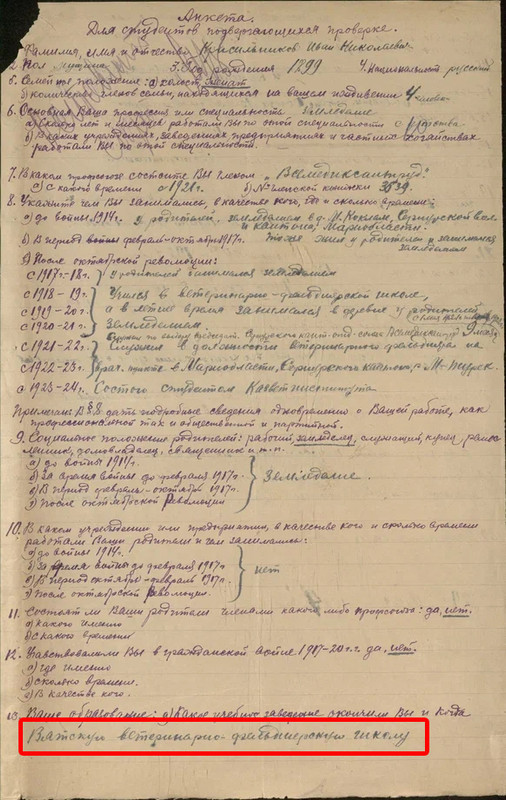 Анкета.
Для студентов подвергающихся проверке.
Фамилия, имя и отчество Красильников Иван Николаевич
2. Пол мужчина 3. Год рождения 1899 4. Национальность русский
5. Семейное положение: а) холост, женат
б) количество членов семьи, находящихся на вашем иждивении 4
6. Основная Ваша профессия или специальность Земледелие
а) сколько лет и месяцев работали Вы по этой специальности с детства
б) в каких учреждениях, заведениях предприятиях и частных хозяйствах
работали Вы по этой специальности.
7. В каком профсоюзе состоите Вы членом „Всемедиксантруд"
а) С какой времени с 1921 г. б) № членской книжки 3539
8. Укажите чем Вы занимались, в качестве кого, где и сколько времени:
а) до войны 1914 г. у родителей, земледелием в д. М. Сернурской вол.
и кантона, Мариобласти.
б) В период войны февраль-октябрь 1917 г. тоже жил у родителей и занимался
земледелием
в) После октябрьской революции:
с 1917-18 г. у родителей занимался земледелием
с 1918-19 г. Учился в ветеринарно-фельдшерской школе,
с 1919-20 г. а в летние время занимался в деревне у родителей
с 1920-21 г. Земледелием.
с 1921-22 г. Служил в должности ветеринарного фельдшера на
с 1922-23 г. врач. пункте в Мариобласти, Сернурского кантона, с. М-Турек.
с 1923-24 г. Состою студентом Казветинститута
Примечан: В § 8 дать подробные сведения одновременно о Вашей работе, как
профессиональной так и общественной и партийной.
9. Социальное положение родителей: рабочий, земледелец, служащий, купец, ремес
ленник, домовладелец, священник и т.п.
а) до войны 1914 г.
б) За время войны до февраля 1917 г. Земледелие.
в) В период февраль-октябрь 1917 г.
г) После октябрьской революции
10. В каком учреждении или предприятии, в качестве кого и сколько времени
работали Ваши родители и чем занимались:
а) до войны 1914 г.
б) За время войны до февраля 1917 г. нет
в) В период октябрь-февраль 1917 г.
г) После октябрьской революции.
11. Состоят ли Ваши родители членами какого либо профсоюза: да, нет.
а) какого именно
б) с какого времени
12. Участвовали ли Вы в гражданской войне 1917-20 г.г. да, нет.
а) где именно
б) сколько времени.
в) В качестве кого.
13. Ваше образование: а) Какое учебное заведение окончили Вы и когда
Вятскую ветеринарно-фельдшерскую школу